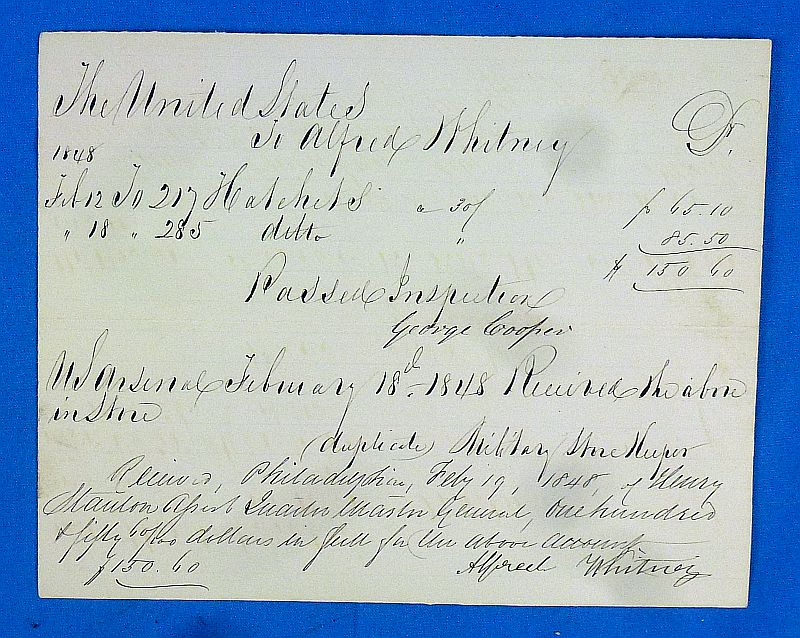 The United States
To Alfred Whitney Dr.
1848
Feb 12 To 217 Hatchets a 30/ $ 65.10
" 18 " 285 ditto " 85.50
$ 150 60
Passed Inspection
George Cooper
US Arsenal February 18th 1848 Received the above
in Store
duplicate Military Store Keeper
Received, Philadelphia, Feby 19, 1848, of Henry
Stanton Assist Quarter Master General, One hundred
& fifty 60/100 dollars in full for the above account
$150.60 Alfred Whitney